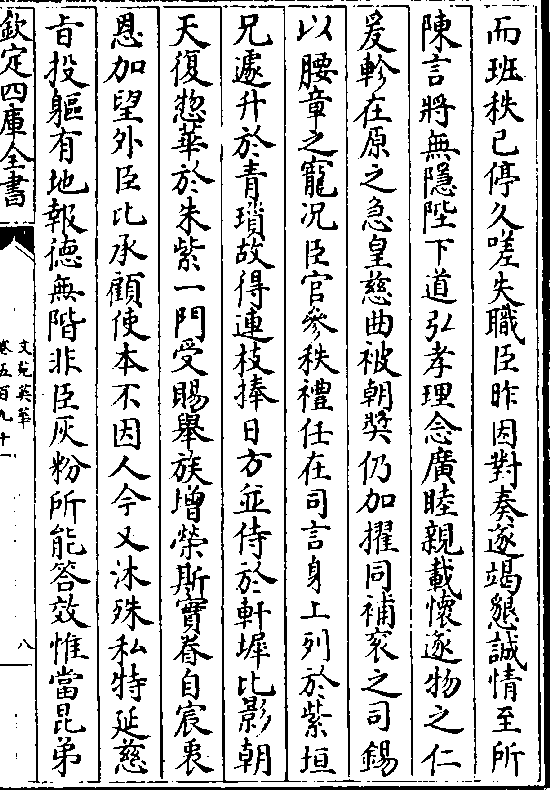 而班秩已停久嗟失職臣昨因對奏遂竭懇誠情至所
陳言將無隱陛下道弘孝理念廣睦親載懷遂物之仁
爰軫在原之急皇慈曲被朝獎仍加擢同補衮之司錫
以腰章之寵况臣官參秩禮任在司言身上列於紫垣
兄遽升於青瑣故得連枝捧日方並侍於軒墀比影朝
天復惣華於朱紫一門受賜舉族增榮斯實眷自宸衷
恩加望外臣比承顧使本不因人今又沐殊私特延慈
㫖投軀有地報德無階非臣灰粉所能答效惟當昆弟
欽定四庫全書
文苑英華
卷五百九十一
八